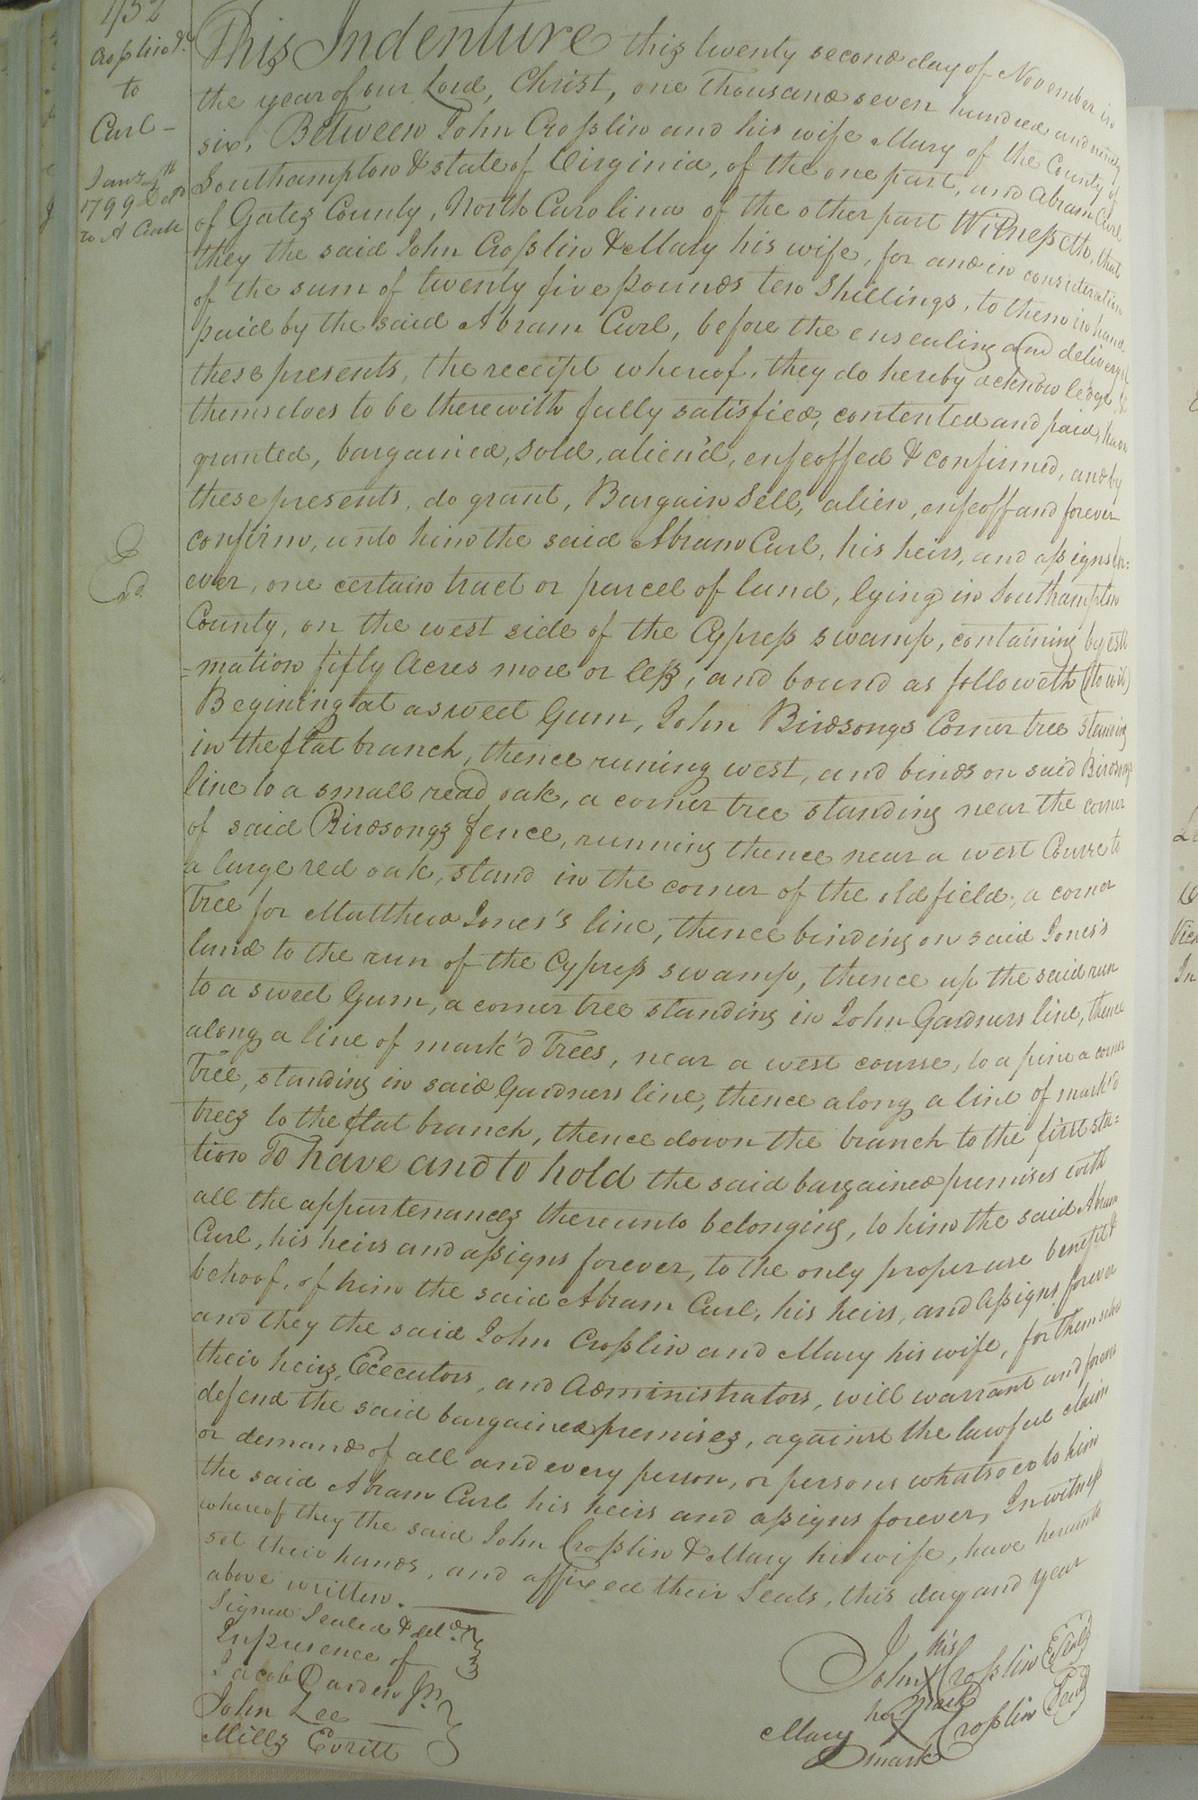 452
Crosslin &c
to
Curl –
Jany
1799
to A Curl
Exd
This Indenture this twenty second day of November in
the year of our Lord, Christ, one Thousand seven hundred and ninety
six, Between John Crosslin and his wife Mary of the County of
Southampton & state of Virginia, of the one part, and Abram Curl
of Gates County, North Carolina of the other part Witnesseth, that
they the said John Crosslin & Mary his wife, for and in consideration
of the sum of twenty five pounds ten Shillings, to them in hand
paid by the said Abram Curl, before the ensealing and delivery of
these presents, the receipt whereof, they do hereby acknowledge, &
themselves to be therewith fully satisfied, contented and paid, have
granted, bargained, sold, alien'd, enfeoffed & confirmed, and by
these presents, do grant, Bargain Sell, alien, enfeoff and forever
confirm, unto him the said Abram Curl, his heirs, and assigns for=
ever, one certain tract or parcel of land, lying in Southampton
County, on the west side of the Cypress swamp, containing by esti
=mation fifty Acres more or less, and bound as followeth (to wit)
Begining at a sweet Gum, John Birdsongs Corner tree standing
in the flat branch, thence runing west, and binds on said Birdsongs
line to a small read oak, a corner tree standing near the corner
of said Birdsongs fence, running thence near a west Course to
a large red oak, stand in the corner of the old field, a corner
Tree for Matthew Jones's line, thence binding on said Jones's
land to the run of the Cypress swamp, thence up the said run
to a sweet Gum, a corner tree standing in John Gardners line, thence
along a line of mark'd Trees, near a west course, to a pine a corner
Tree, standing in said Gardners line, thence along a line of mark'd
trees to the flat branch, thence down the branch to the first sta=
tion To have and to hold the said bargained premises with
all the appurtenances thereunto belonging, to him the said Abram
Curl, his heirs and assigns forever, to the only proper use benefit &
behoof, of him the said Abram Curl, his heirs, and Assigns forever
and they the said John Crosslin and Mary his wife, for themselves
their heirs, Executors, and Administrators, will warrant and forever
defend the said bargained premises, against the lawful claim
or demand of all and every person, or persons whatsoever to him
the said Abram Curl his heirs and assigns forever, In witness
whereof they the said John Crosslin & Mary his wife, have hereunto
set their hands, and affixed their Seals, this day and year
above written.
Signed Sealed & deld
In presence of
Jacob Darden Jr.
John Lee
Mills Evritt
his
John X Crosslin Seal
mark
her
Mary X Crosslin Seal
mark